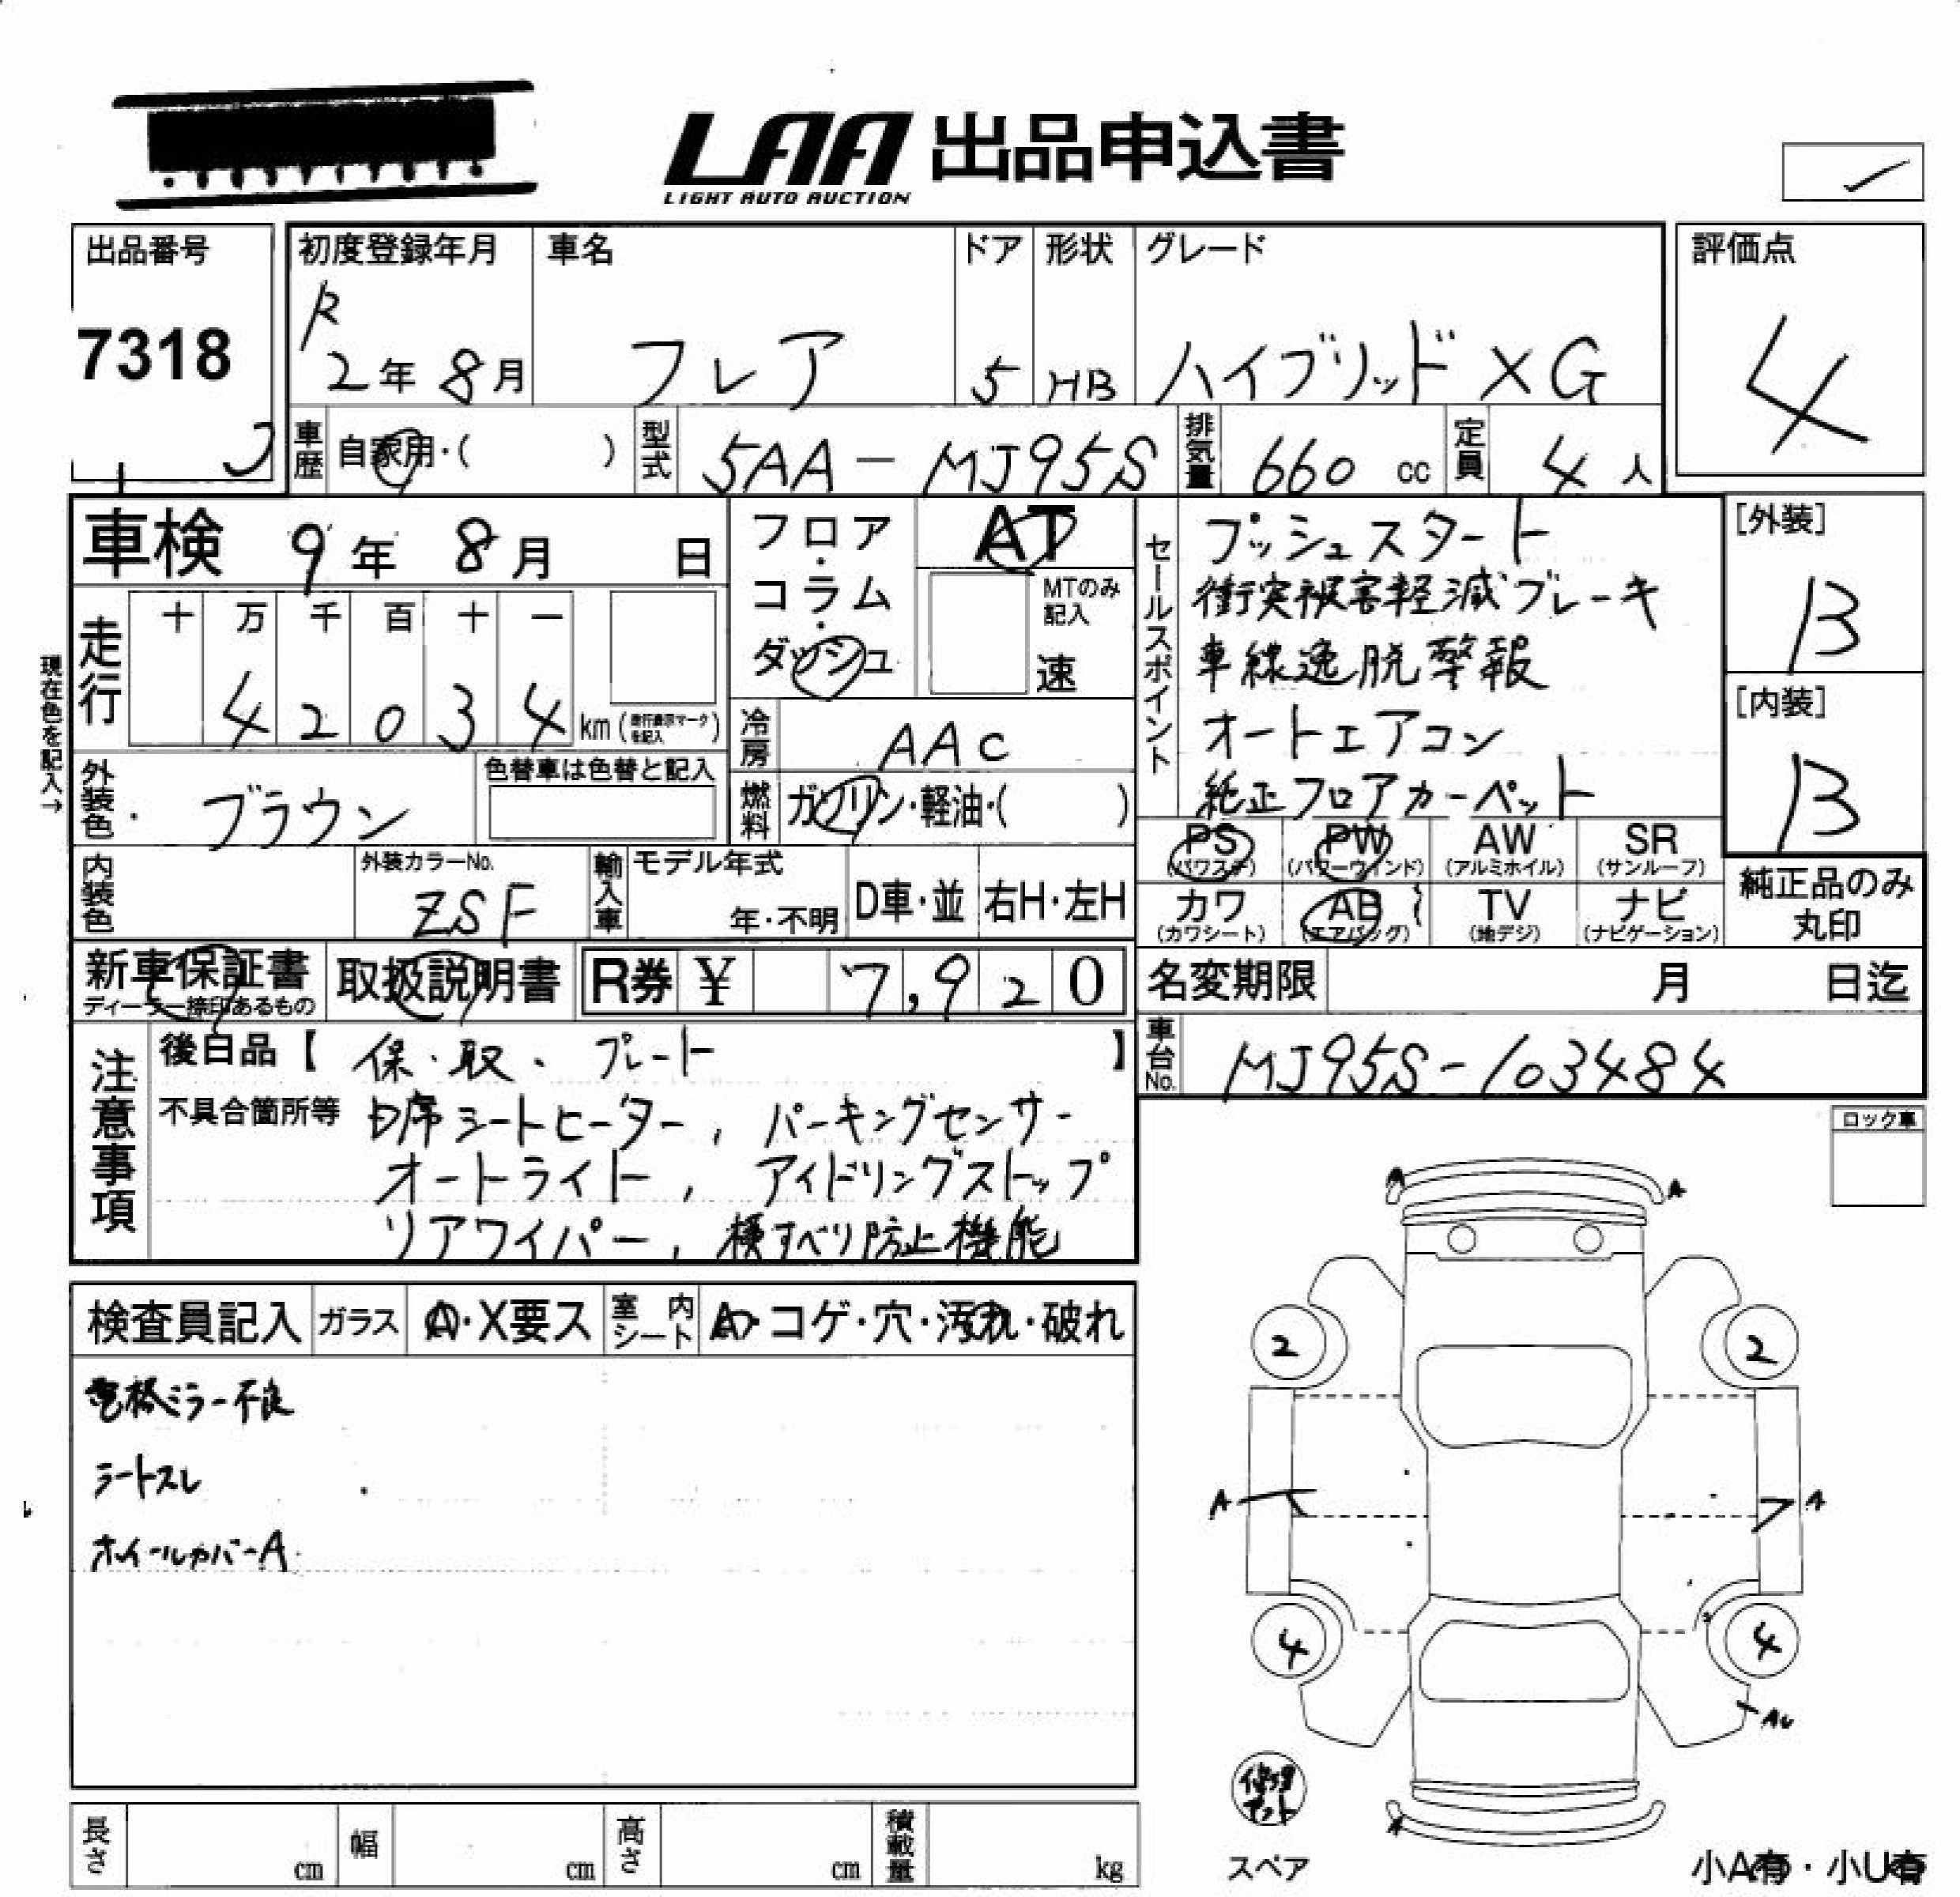 LAA 出品申込書
LIGHT AUTO AUCTION
出品番号
7318
初度登録年月
R
2年8月
車名
フレア
ドア
5
形状
HB
グレード
ハイブリッド XG
評価点
4
車歴 自家用・( )
型式 5AA-MJ95S
排気量 660 cc
定員 4人
車検 9年8月 日
フロア・コラム・ダッシュ
AT
MTのみ記入
速
セールスポイント
プッシュスタート
衝突被害軽減ブレーキ
車線逸脱警報
オートエアコン
純正フロアカーペット
[外装]
B
[内装]
B
現在色を記入→
走行
十 万 千 百 十 一
4 2 0 3 4 km(走行表示マークを記入)
冷房 AAC
外装色 ブラウン
色替車は色替と記入
燃料 ガソリン・軽油・( )
PS (パワステ)
PW (パワーウィンド)
AW (アルミホイル)
SR (サンルーフ)
カワ (カワシート)
AB (エアバッグ)
TV (地デジ)
ナビ (ナビゲーション)
純正品のみ
丸印
内装色
外装カラーNo.
ZSF
輸入車
モデル年式
年・不明
D車・並
右H・左H
新車保証書
ディーラー捺印あるもの
取扱説明書
R券 ¥ 7,920
名変期限 月 日迄
車台No. MJ95S-103484
注意事項
後日品【 保・取、プレート 】
不具合箇所等 D席シートヒーター, パーキングセンサー
オートライト, アイドリングストップ
リアワイパー, 横すべり防止機能
ロック車
検査員記入
ガラス A・X要ス
室内シート A・コゲ・穴・汚れ・破れ
電格ミラー不良
シートスレ
ホイールカバーA
A A
2 2
A A
4 4
AU
A
修理キット
スペア
小A有・小U有
長さ cm
幅 cm
高さ cm
積載量 kg